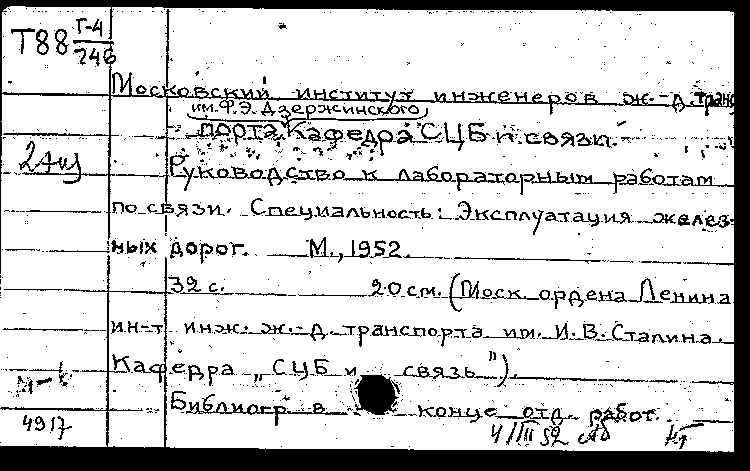 Т88 Г-4
246
Московский институт инженеров ж.-д. транс
им. Ф.Э. Дзержинского
порта. Кафедра СЦБ и связи.
2 экз
Руководство к лабораторным работам
по связи. Специальность: Эксплуатация желез-
ных дорог. М., 1952.
32 с. 20 см. (Моск. ордена Ленина
ин-т инж. ж.-д. транспорта им. И.В. Сталина.
Кафедра „СЦБ и связь").
Библиогр в конце отд. работ.
4917
4/III 52